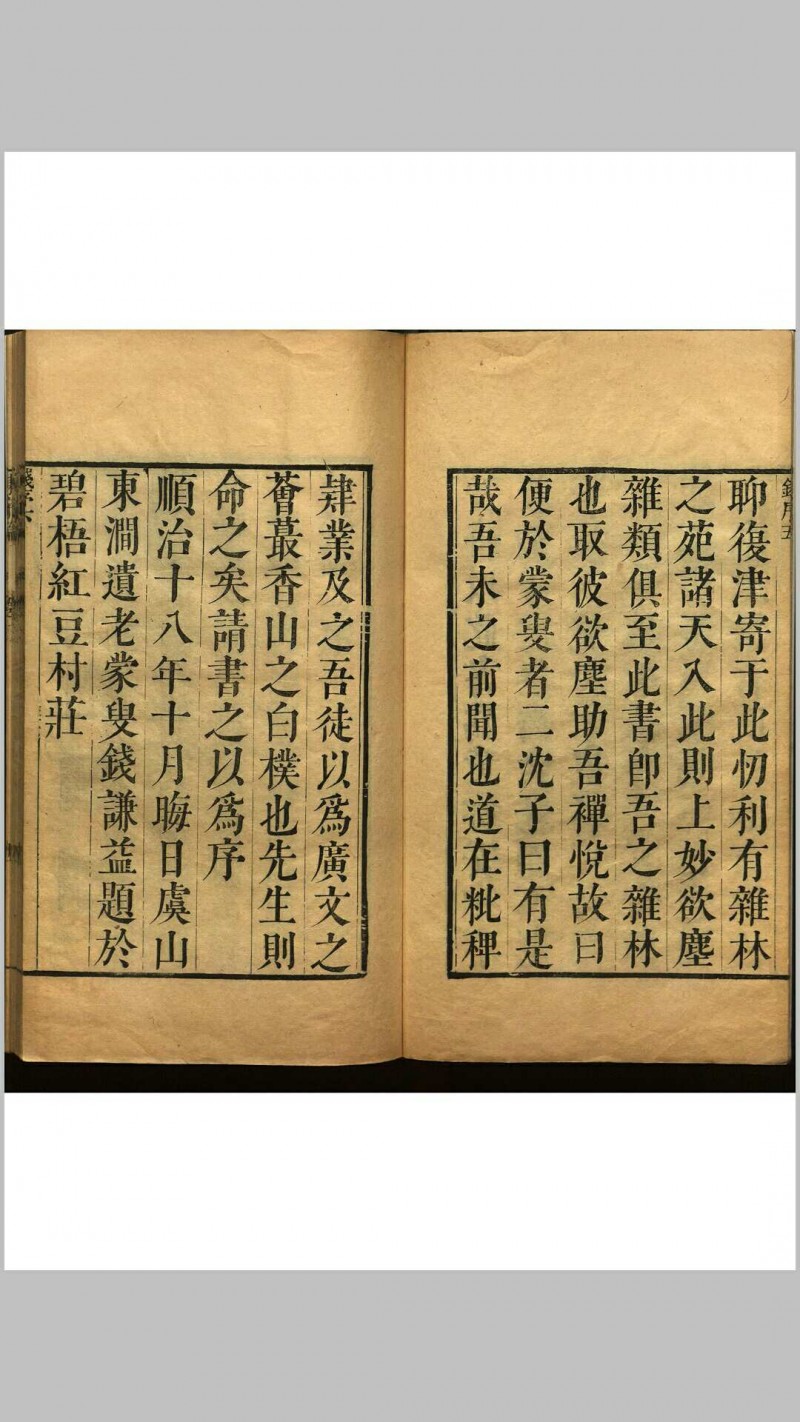 聊復津寄于此忉利有雜林
之苑諸天入此則上妙欲塵
雜類俱至此書卽吾之雜林
也取彼欲塵助吾禪悅故曰
便於蒙叟者二沈子曰有是
哉吾未之前聞也道在粃稗
肄業及之吾徒以爲廣文之
薈蕞香山之白樸也先生則
命之矣請書之以爲序
順治十八年十月晦日虞山
東澗遺老蒙叟錢謙益題於
碧梧紅豆村莊